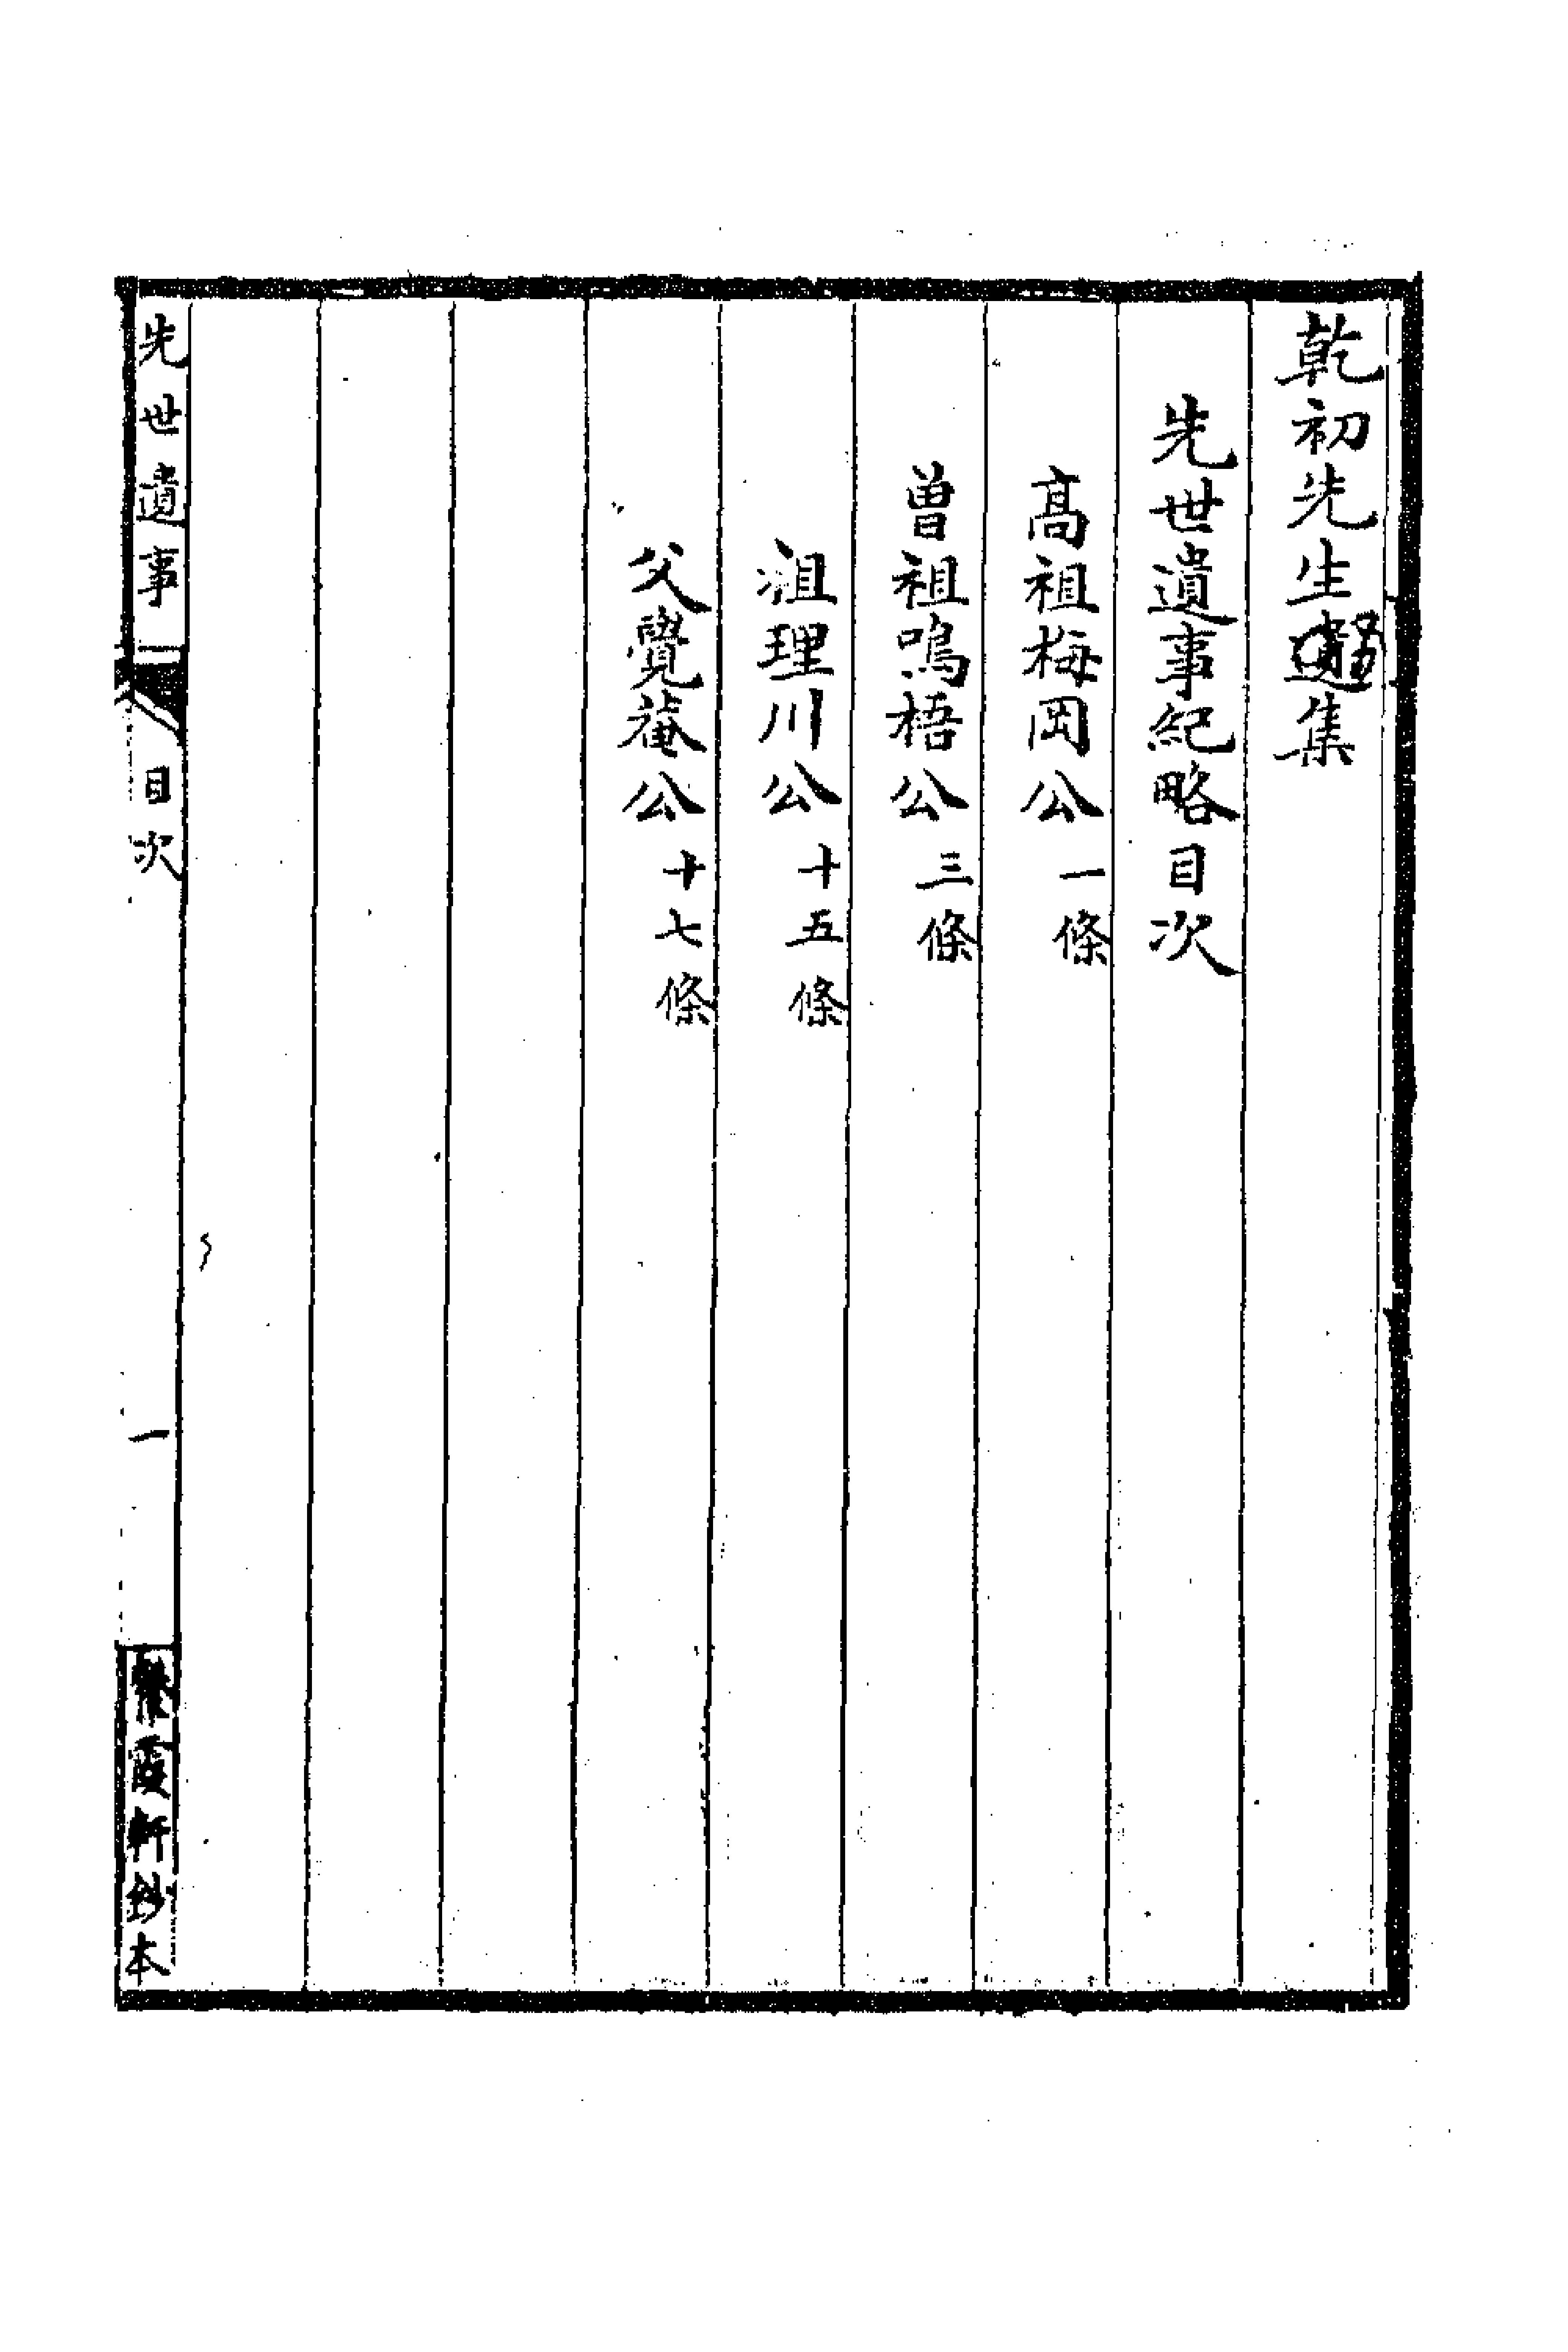 乾初先生集
先世遺事紀略目次
高祖梅岡公 一條
曽祖鳴梧公 三條
祖理川公 十五條
父覺菴公 十七條
先世遺事 目次 一 餐霞軒鈔本